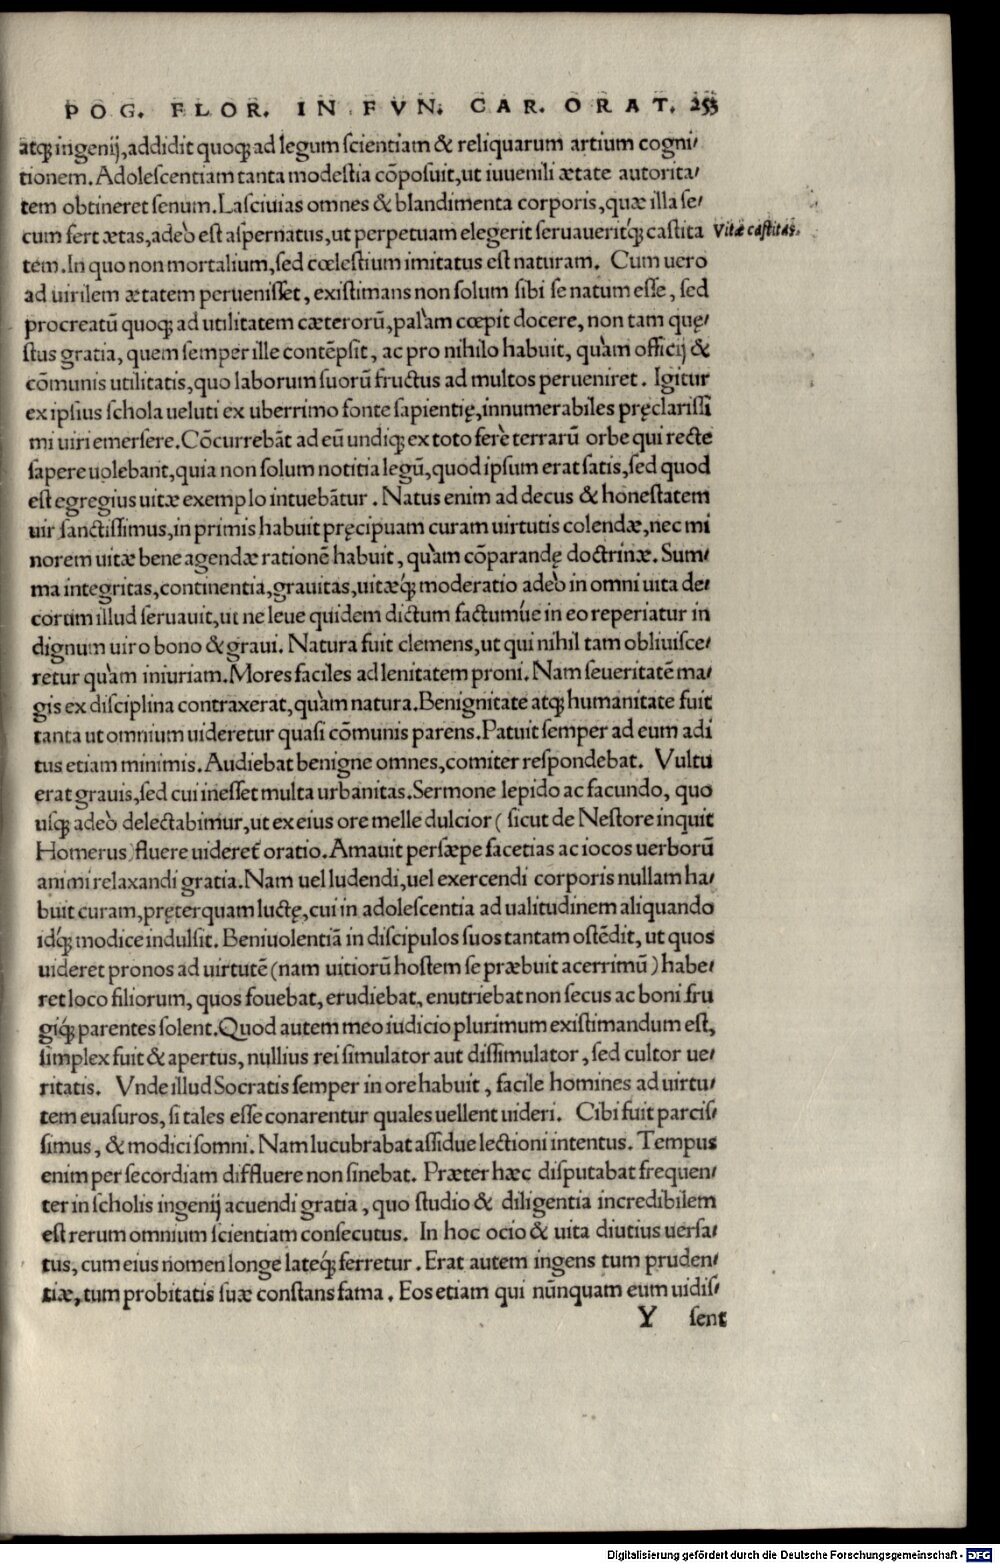 POG. FLOR. IN FVN. CAR. ORAT. 253
atq́; ingenij, addidit quoq; ad legum ſcientiam & reliquarum artium cogni/
tionem. Adoleſcentiam tanta modeſtia cõpoſuit, ut iuuenili ætate autorita/
tem obtineret ſenum. Laſciuias omnes & blandimenta corporis, quæ illa ſe/
cum fert ætas, adeò eſt aſpernatus, ut perpetuam elegerit ſeruaueritq́; caſtita
Vitæ caſtitas.
tem. In quo non mortalium, ſed cœleſtium imitatus eſt naturam. Cum uero
ad uirilem ætatem perueniſſet, exiſtimans non ſolum ſibi ſe natum eſſe, ſed
procreatũ quoq; ad utilitatem cæterorũ, palàm cœpit docere, non tam quę/
ſtus gratia, quem ſemper ille contẽpſit, ac pro nihilo habuit, quàm officij &
cõmunis utilitatis, quo laborum ſuorũ fructus ad multos perueniret. Igitur
ex ipſius ſchola ueluti ex uberrimo fonte ſapientię, innumerabiles pręclariſſi
mi uiri emerſere. Cõcurrebãt ad eũ undiq; ex toto ferè terrarũ orbe qui recte
ſapere uolebant, quia non ſolum notitia legũ, quod ipſum erat ſatis, ſed quod
eſt egregius uitæ exemplo intuebãtur. Natus enim ad decus & honeſtatem
uir ſanctiſſimus, in primis habuit pręcipuam curam uirtutis colendæ, nec mi
norem uitæ bene agendæ rationẽ habuit, quàm cõparandę doctrinæ. Sum/
ma integritas, continentia, grauitas, uitæq́; moderatio adeò in omni uita de/
corum illud ſeruauit, ut ne leue quidem dictum factumúe in eo reperiatur in
dignum uiro bono & graui. Natura fuit clemens, ut qui nihil tam obliuiſce/
retur quàm iniuriam. Mores faciles ad lenitatem proni. Nam ſeueritatẽ ma/
gis ex diſciplina contraxerat, quàm natura. Benignitate atq; humanitate fuit
tanta ut omnium uideretur quaſi cõmunis parens. Patuit ſemper ad eum adi
tus etiam minimis. Audiebat benigne omnes, comiter reſpondebat. Vultu
erat grauis, ſed cui ineſſet multa urbanitas. Sermone lepido ac facundo, quo
uſq; adeò delectabimur, ut ex eius ore melle dulcior ( ſicut de Neſtore inquit
Homerus) fluere uideret᷑ oratio. Amauit perſæpe facetias ac iocos uerborũ
animi relaxandi gratia. Nam uel ludendi, uel exercendi corporis nullam ha/
buit curam, pręterquam luctę, cui in adoleſcentia ad ualitudinem aliquando
idq́; modice indulſit. Beniuolentiã in diſcipulos ſuos tantam oſtẽdit, ut quos
uideret pronos ad uirtutẽ (nam uitiorũ hoſtem ſe præbuit acerrimũ) habe/
ret loco filiorum, quos fouebat, erudiebat, enutriebat non ſecus ac boni fru
giq́; parentes ſolent. Quod autem meo iudicio plurimum exiſtimandum eſt,
ſimplex fuit & apertus, nullius rei ſimulator aut diſſimulator, ſed cultor ue/
ritatis. Vnde illud Socratis ſemper in ore habuit, facile homines ad uirtu/
tem euaſuros, ſi tales eſſe conarentur quales uellent uideri. Cibi fuit parciſ/
ſimus, & modici ſomni. Nam lucubrabat aſſidue lectioni intentus. Tempus
enim per ſecordiam diffluere non ſinebat. Præter hæc diſputabat frequen/
ter in ſcholis ingenij acuendi gratia, quo ſtudio & diligentia incredibilem
eſt rerum omnium ſcientiam conſecutus. In hoc ocio & uita diutius uerſa/
tus, cum eius nomen longe lateq́; ferretur. Erat autem ingens tum pruden/
tiæ, tum probitatis ſuæ conſtans fama. Eos etiam qui nũnquam eum uidiſ/
Y ſent
Digitalisierung gefördert durch die Deutsche Forschungsgemeinschaft - DFG